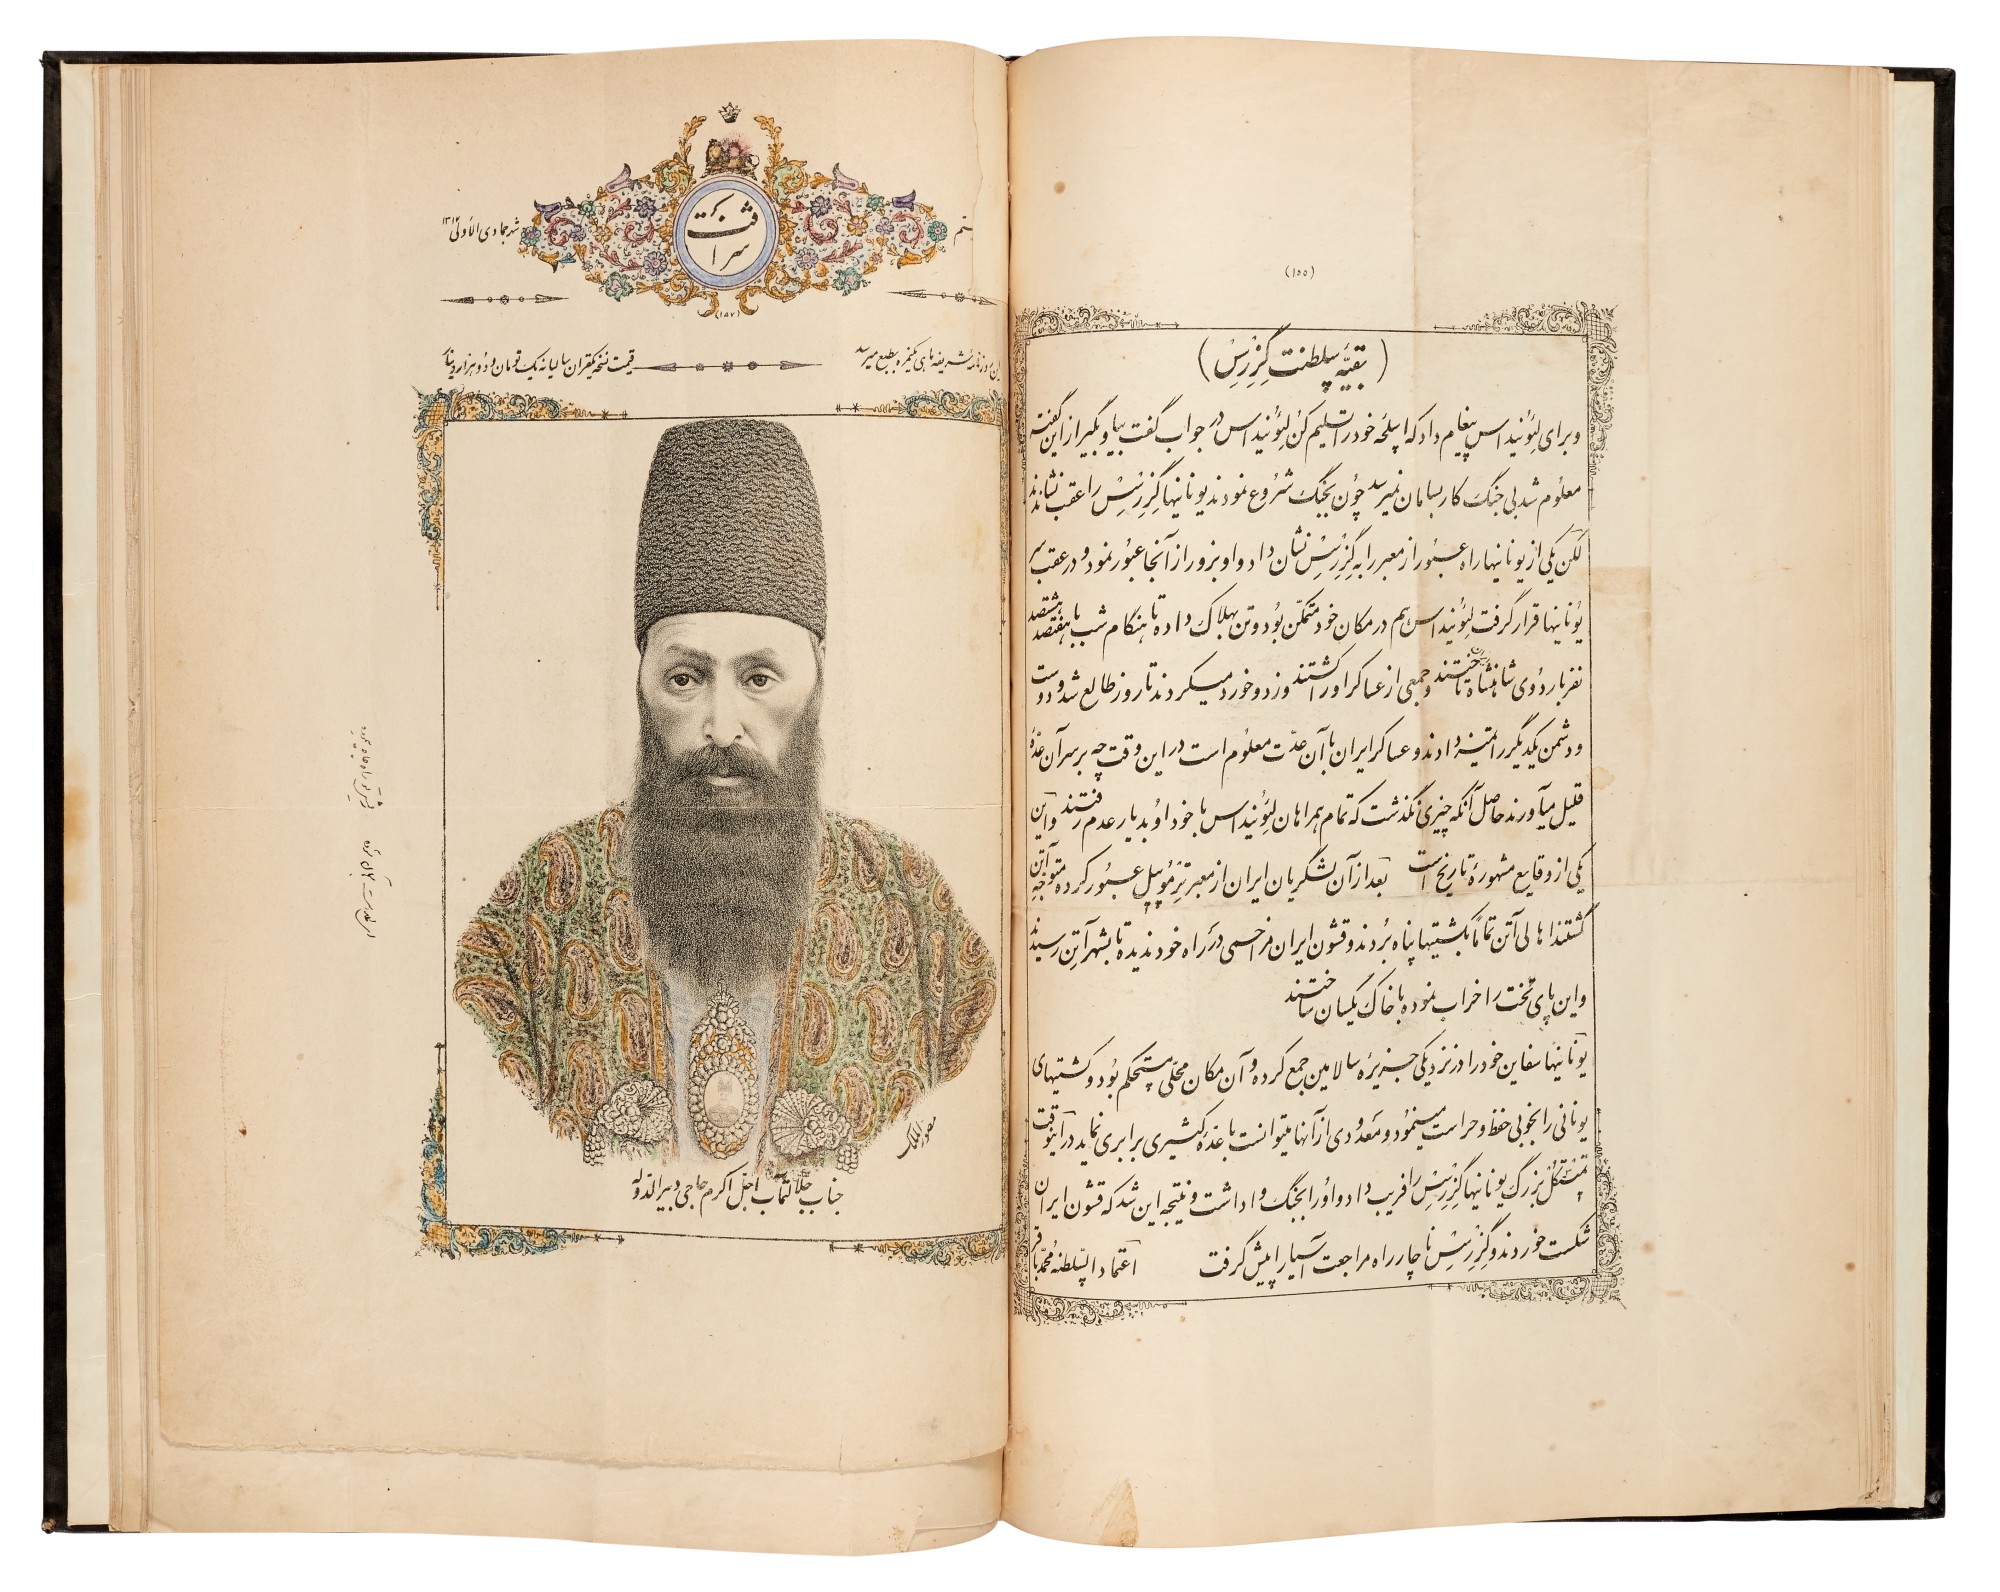 (۱۵۵)
(بقیّه سلطنت گزِرسِسْ)
و برای لئونیداس پیغام داد که اسلحه خود را تسلیم کن لئونیداس در جواب گفت بیا و بگیر از این گفته
معلوم شد بی جنگ کار بسامان نمیرسد چون بجنگ شروع نمودند یونانیها گزرسس را عقب نشاندند
لکن یکی از یونانیها راه عبور از معبر را به گزرسس نشان داد و او بزور از آنجا عبور نمود و در عقب سر
یونانیها قرار گرفت لئونیداس هم در مکان خود متمکن بود و تن بهلاک داده تا هنگام شب با هفتصد هشتصد
نفر باردوی شاهنشاه تاختند و جمعی از عساکر او را کشتند و زد و خورد میکردند تا روز طالع شد و دوست
و دشمن یکدیگر را تمیز دادند و عساکر ایران با آن عدّت معلوم است در این وقت چه بر سر آن عدّهٔ
قلیل میآورند حاصل آنکه چیزی نگذشت که تمام همراهان لئونیداس با خود او بدیار عدم رفتند و این
یکی از وقایع مشهورهٔ تاریخ است بعد از آن لشگریان ایران از معبر ترموپیل عبور کرده متوجه آتن
گشتند اهالی آتن تماماً بکشتیها پناه بردند و قشون ایران مزاحمی در راه خود ندیده تا بشهر آتن رسیدند
و این پای تخت را خراب نموده با خاک یکسان ساختند
یونانیها سفاین خود را در نزدیکی جزیرهٔ سالامین جمع کرده و آن مکان محلی مستحکم بود و کشتیهای
یونانی را بخوبی حفظ و حراست مینمود و معدودی از آنها میتوانست با عدّهٔ کثیری برابری نماید در آنوقت
تمیستکل بزرگ یونانیها گزرسس را فریب داد و او را بجنگ واداشت و نتیجه این شد که قشون ایران
شکست خوردند و گزرسس ناچار راه مراجعت آسیا را پیش گرفت اعتماد السلطنه محمد باقر
شرافت
شهر جمادی الاولی ۱۳۱۴
(۱۵۷)
این روزنامه شریفه ماهی یکنمره بطبع میرسد
قیمت نسخه یکقران سالیانه یک تومان و دو هزار دینار
مصور الملک
جناب جلالتمآب اجل اکرم حاجی دبیر الدوله